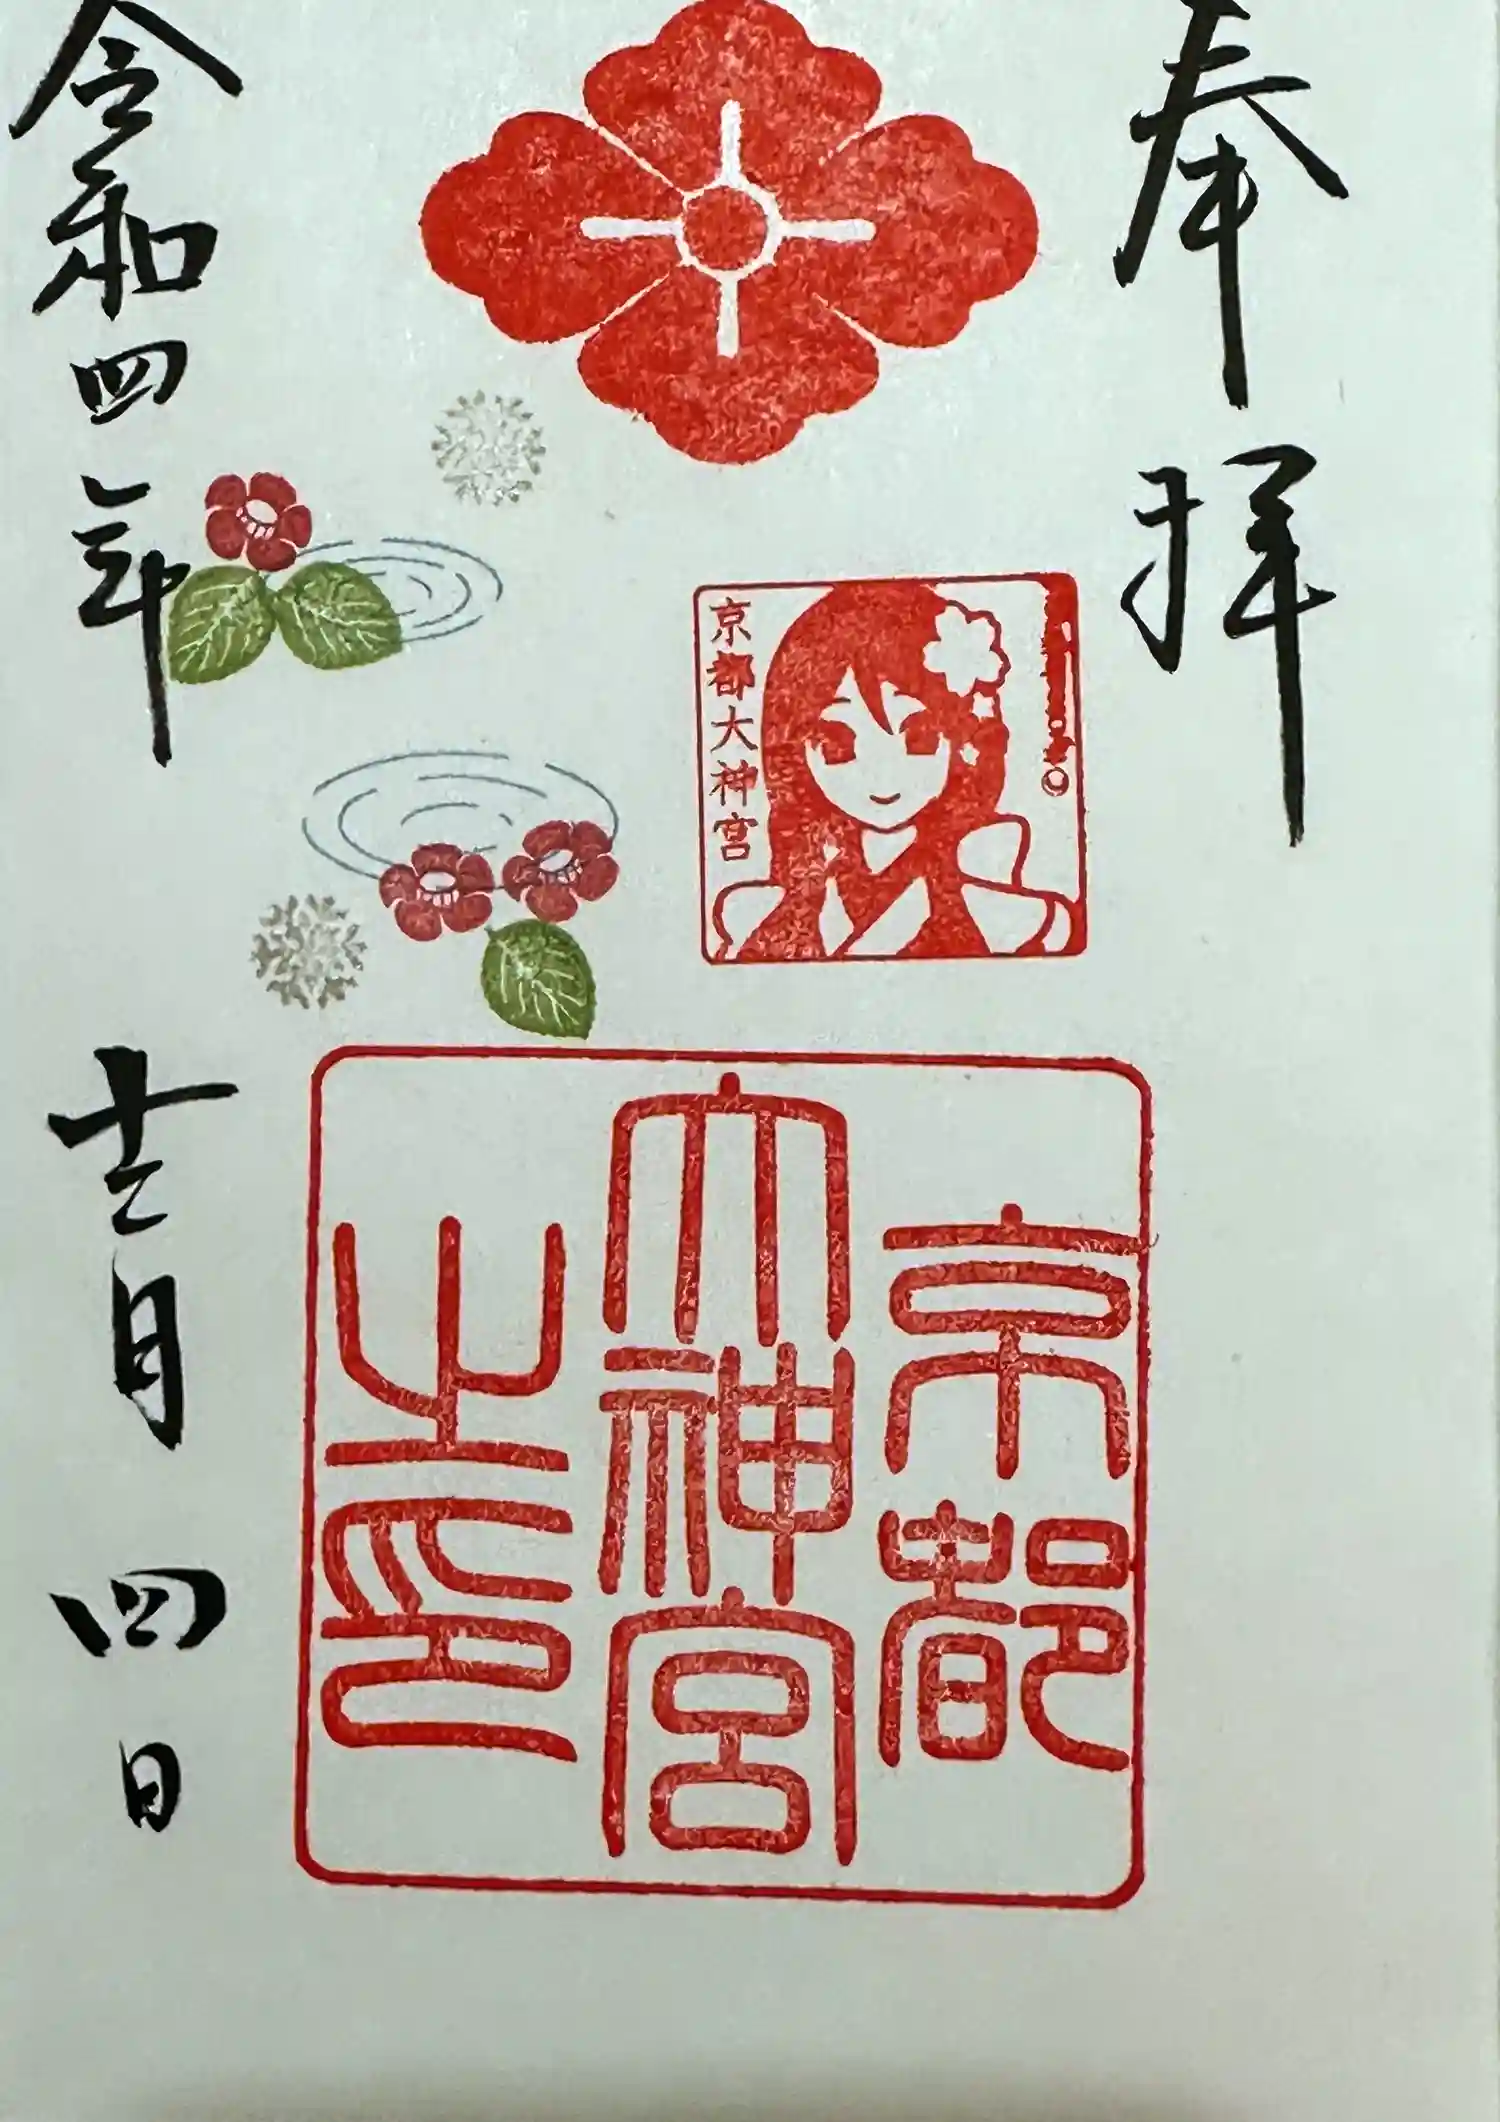 奉拝
京都
大神宮
之印
京都大神宮
令和四年
十二月四日